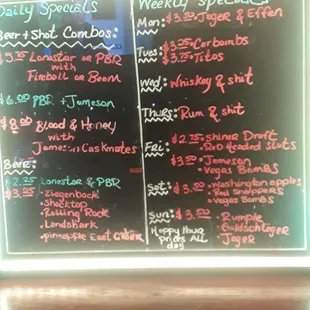 Daily Specials
Beer + Shot Combos:
$5.25 Lonestar or PBR
with
Fireball or Beam
$6.00 PBR + Jameson
$8.00 Blood & Honey
with
Jameson Caskmates
Beer:
$2.25 Lonestar & PBR
$3.25 • Ziegenbock
• Shocktop
• Rolling Rock
• Landshark
• pineapple East Cider
Weekly Specials
Mon: $3.00 • Jager & Effen
Tues: $3.75 • Carbombs
$3.75 • Titos
Wed: Whiskey & shit
Thurs: Rum & shit
Fri: $2.75 • Shiner Draft
• Red Headed Sluts
$3.00 • Jameson
• Vegas Bombs
Sat: $3.00 • Washington apples
• Red Snappers
• Vegas Bombs
Sun: $3.00 • Rumple
Goldschlager
Jager
Happy Hour
Prices All
day